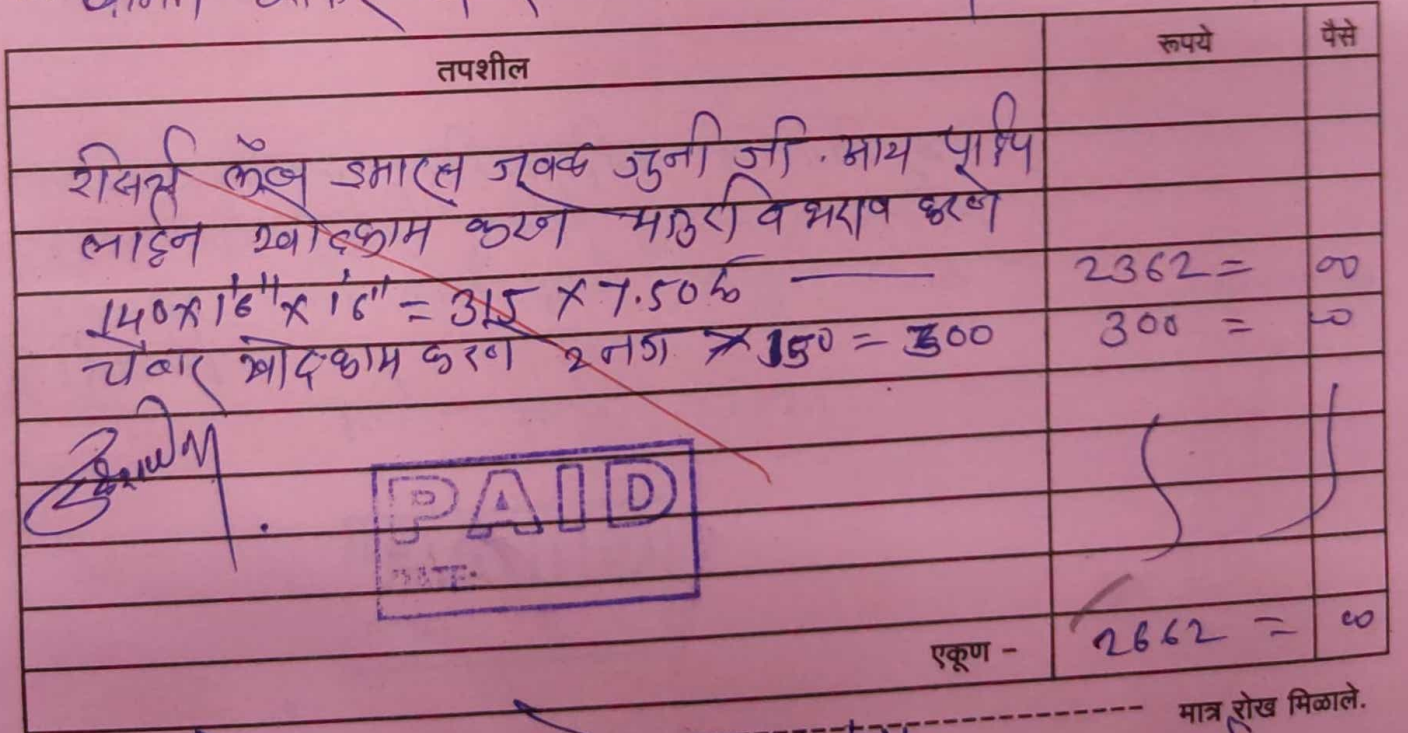 तपशील रूपये पैसे
लॅब जवळ जुनी जी. आय पाईप
लाईन खोदकाम करणे मजुरी व भराव करणे
140 x 1'6" x 1'6" = 315 x 7.50 2362 = 00
चेंबर खोदकाम करणे २ नग x 150 = 300 300 = 00
PAID
DATE:
एकूण - 2662 = 00
मात्र रोख मिळाले.